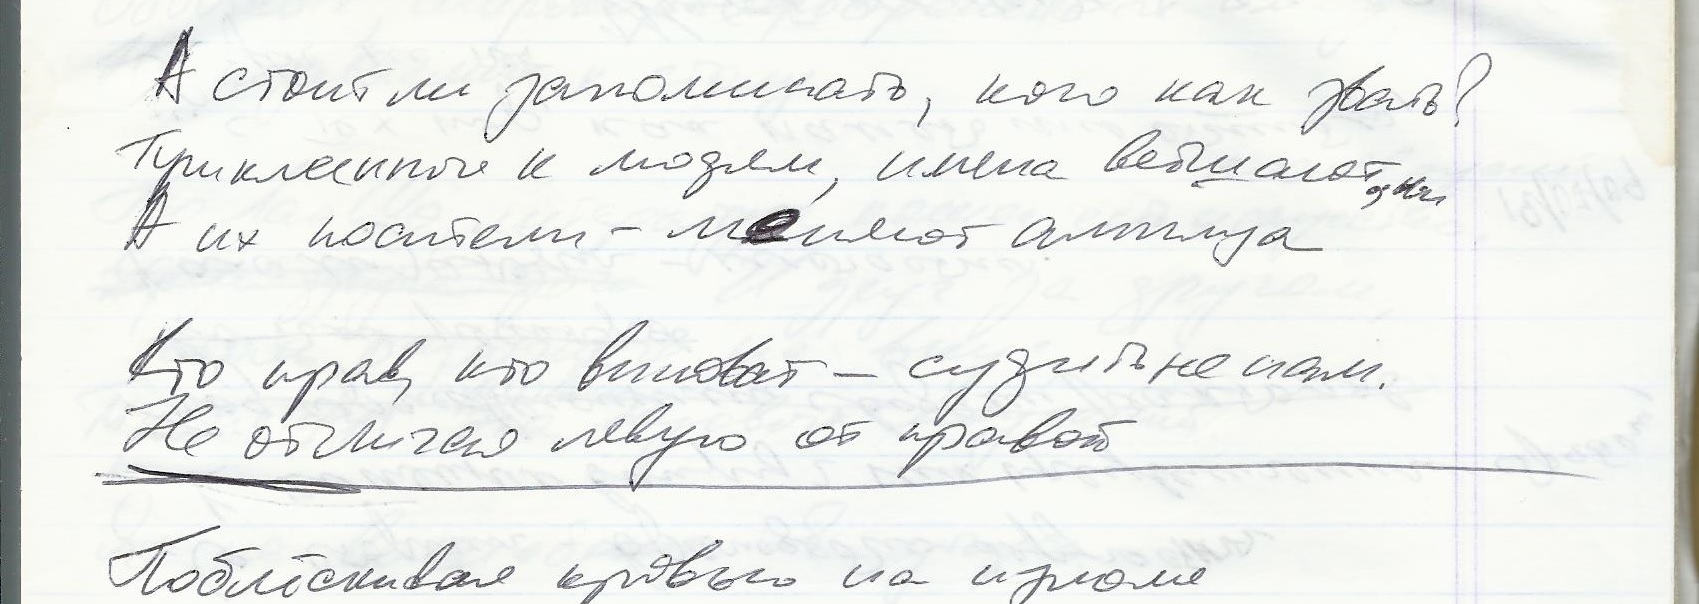 А стоит ли запоминать, кого как звать?
Приклеенные к людям, имена ветшают одни
А их носители – меняют амплуа
Кто прав, кто виноват – судить не нам.
Не отличаю левую от правой
Поблёскивая кровью на изломе